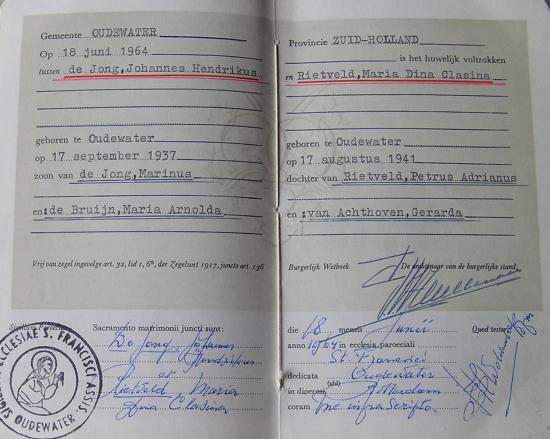 Gemeente OUDEWATER
Op 18 juni 1964
tussen de Jong,Johannes Hendrikus
geboren te Oudewater
op 17 september 1937
zoon van de Jong,Marinus
en:de Bruijn,Maria Arnolda
Vrij van zegel ingevolge art. 32, lid 1, 6º, der Zegelwet 1917, juncto art. 136
Provincie ZUID-HOLLAND
is het huwelijk voltrokken
en Rietveld,Maria Dina Clasina
geboren te Oudewater
op 17 augustus 1941
dochter van Rietveld,Petrus Adrianus
en :van Achthoven,Gerarda
Burgerlijk Wetboek
De ambtenaar van de burgerlijke stand,
Sigillum Parochiae
Sacramento matrimonii juncti sunt:
De Jong, Johannes
Hendrikus
et
Rietveld Maria
Dina Clasina
ECCLESIAE S. FRANCISCI ASSIS.
OUDEWATER
die 18 mensis Junii
anno 1964 in ecclesia paroeciali
St Francisci
dedicata Oudewater
in dioecesi Rotterdam
coram me infrascripto.
Quod testor